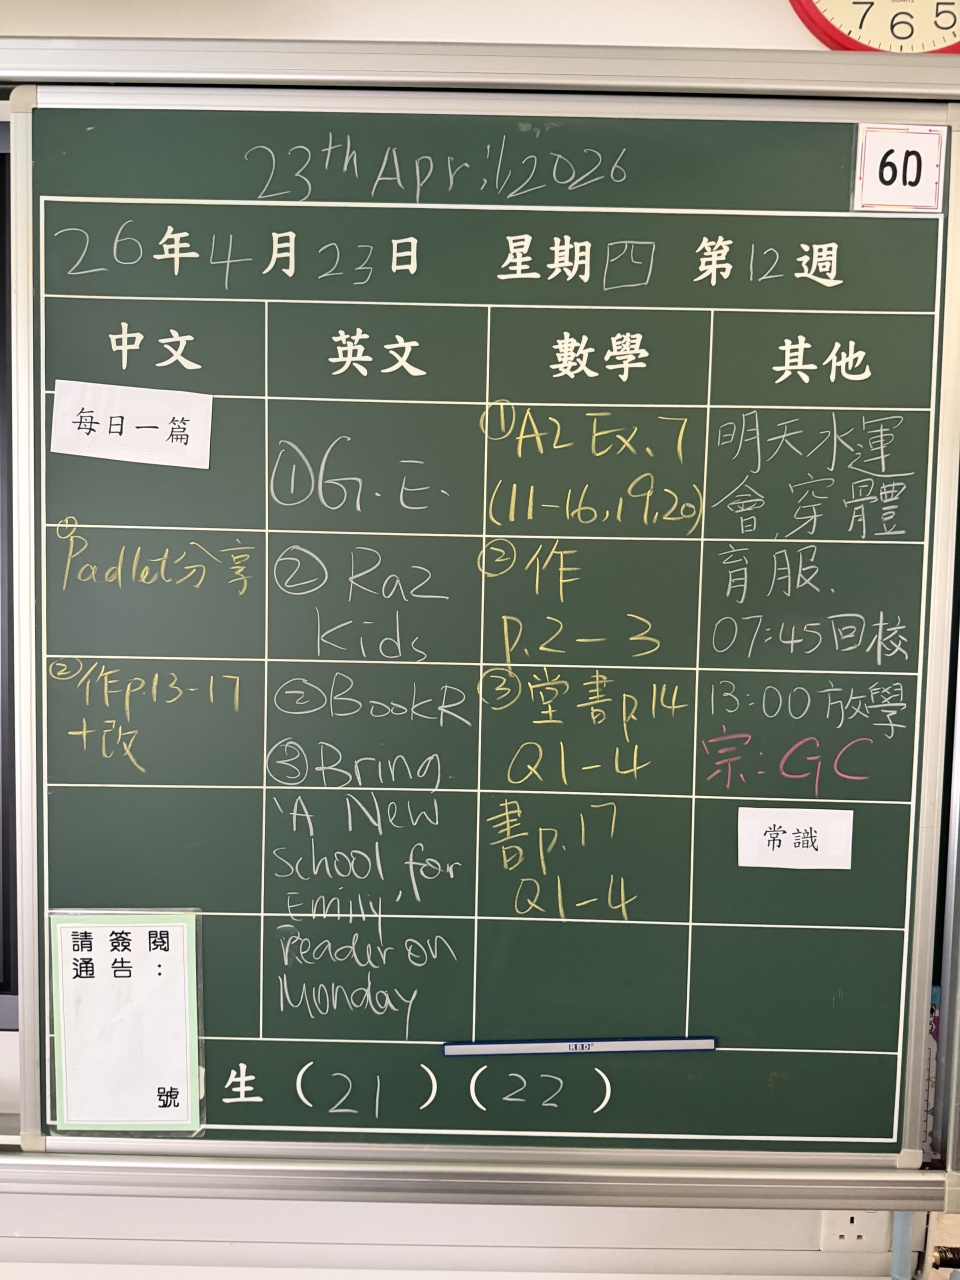 7 6 5
23th April, 2026
6D
26年4月23日 星期四 第12週
中文
每日一篇
① Padlet分享
② 作p.13-17
+改
英文
① G.E.
② Raz
Kids
② BookR
③ Bring
'A New
School for
Emily'
Reader on
Monday
數學
① A2 Ex.7
(11-16,19,20)
② 作
p.2-3
③ 堂書p.14
Q1-4
書p.17
Q1-4
其他
明天水運
會,穿體
育服.
07:45回校
13:00放學
宗:GC
常識
請簽閱
通告:
號
生(21)(22)